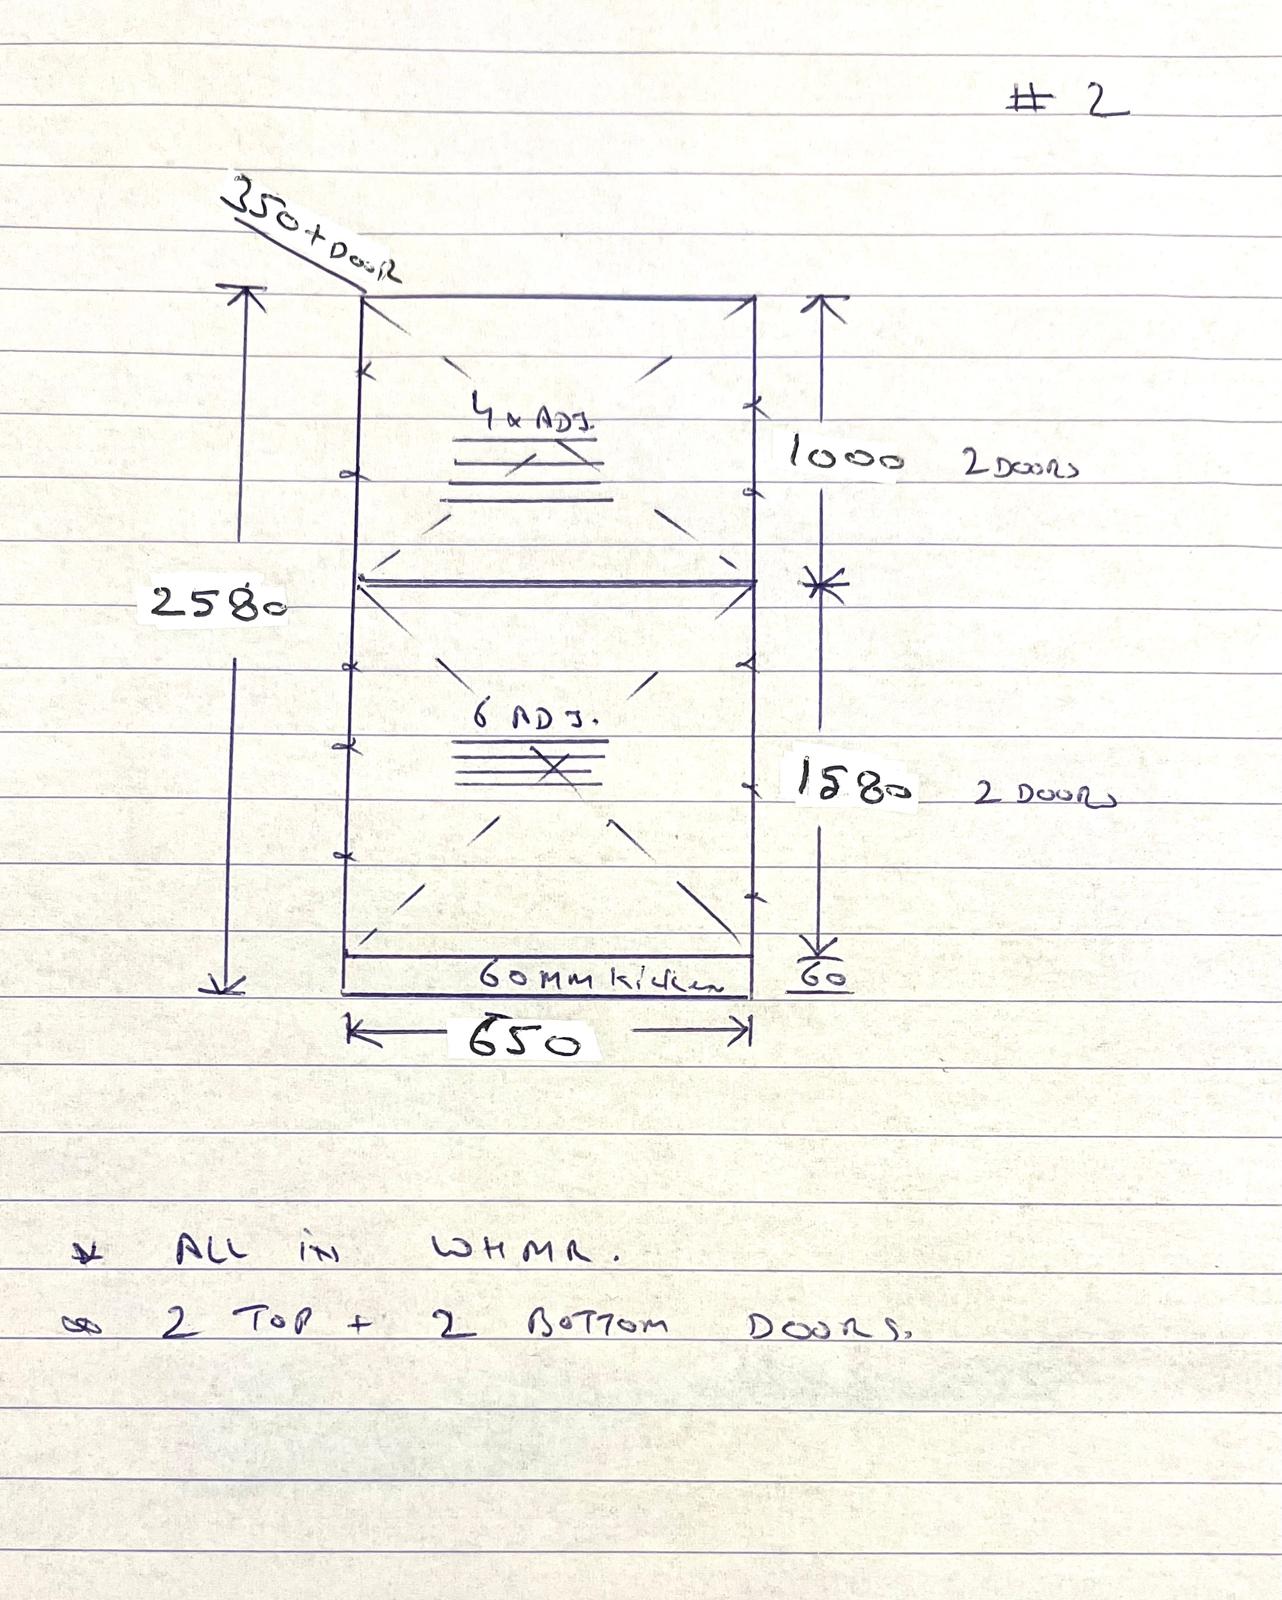 # 2
350 + DOOR
4 x ADJ.
1000 2 DOORS
2580
6 ADJ.
1580 2 DOORS
60MM Kicker
60
650
* ALL IN WHMR.
2 TOP + 2 BOTTOM DOORS.